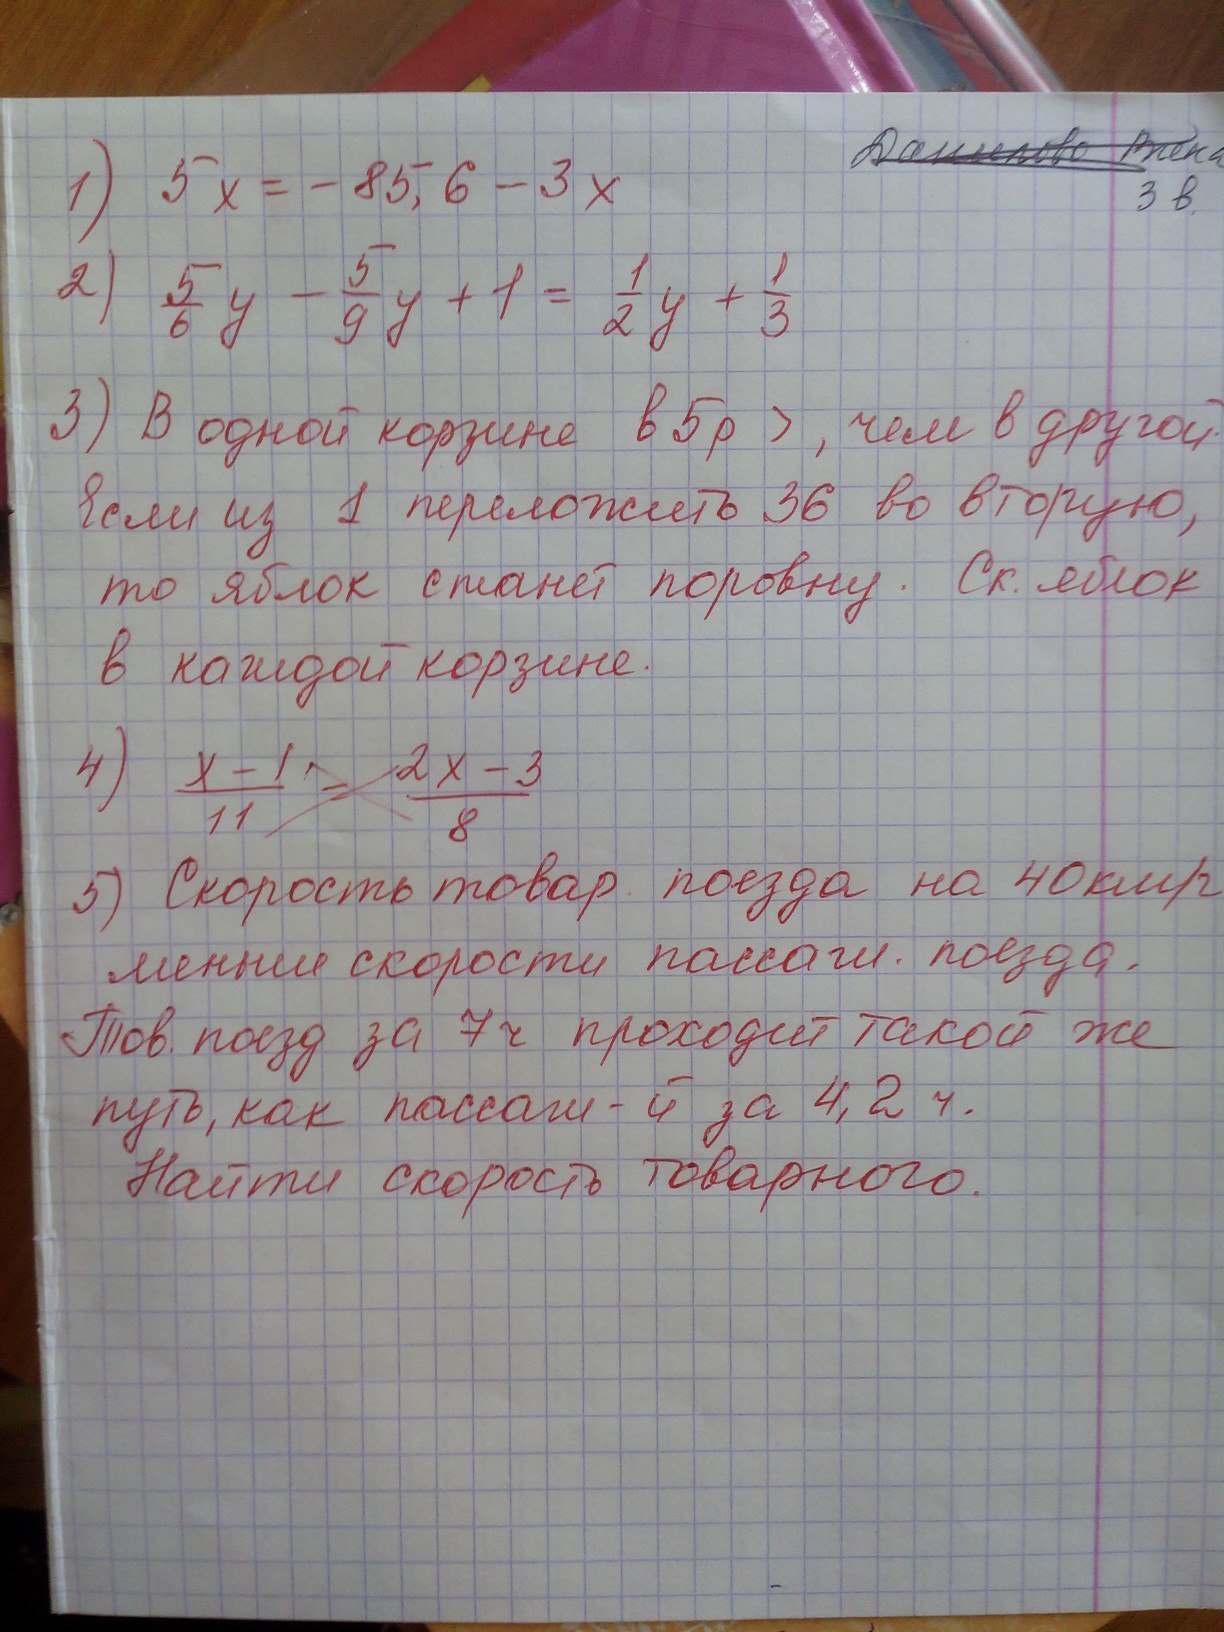 3 в.
1) 5x = - 85,6 - 3x
2) 5/6 y - 5/9 y + 1 = 1/2 y + 1/3
3) В одной корзине в 5р >, чем в другой.
Если из 1 переложить 36 во вторую,
то яблок станет поровну. Ск. яблок
в каждой корзине.
4) x - 1 / 11 = 2x - 3 / 8
5) Скорость товар. поезда на 40км/г
меньше скорости пассаж. поезда.
Тов. поезд за 7ч проходит такой же
путь, как пассаж-й за 4,2 ч.
Найти скорость товарного.